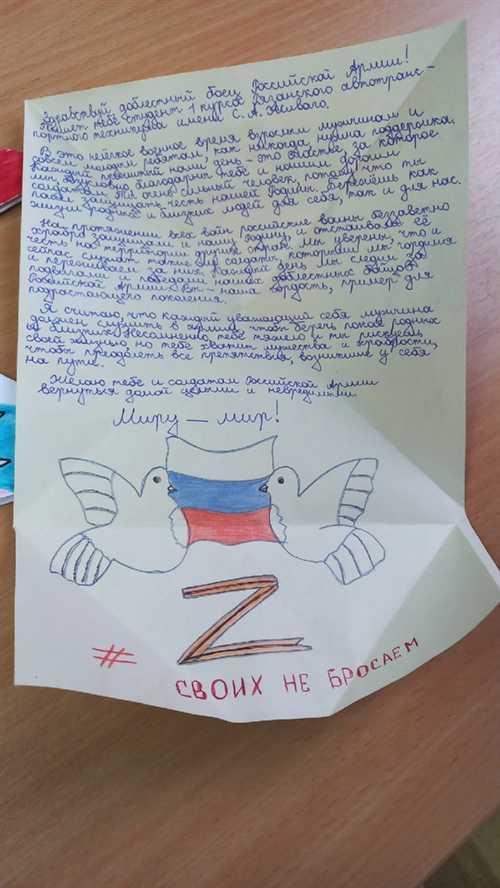 Здравствуй доблестный боец Российской Армии!
Пишет тебе студент 1 курса Рязанского автотранс-
портного техникума имени С. А. Живаго.
В это нелёгкое военное время взрослым мужчинам и
совсем молодым ребятам, как никогда нужна поддержка.
Каждый прожитый нами день - это счастье за которое
мы безусловно благодарны тебе и нашим больим
солдатам. Ты очень сильный человек, потому что ты
пошёл защищать честь нашей Родины. Бережёшь как
жизни родных и близких людей для себя, так и для нас.
На протяжении всех войн российские воины беззаветно
храбро защищали и нашу Родину, и отстаивали её
честь на территории других стран. Мы уверены, что и
сейчас служат такие же солдаты, которыми мы гордимся
и переживаем за них. Каждый день мы следим за
подвигами и победами наших доблестных бойцов
Российской Армии. Вы - наша гордость, пример для
подрастающего поколения.
Я считаю, что каждый уважающий себя мужчина
должен служить в армии, чтобы беречь покой родных
и близких. Несомненно тебе тяжело и ты рискуешь
своей жизнью но тебе хватит мужества и храбрости,
чтобы преодолеть все препятствия, возникшие у себя
на пути.
Желаю тебе и солдатам Российской Армии
вернуться домой целыми и невредимыми
Миру — мир!
Z
# СВОИХ НЕ БРОСАЕМ